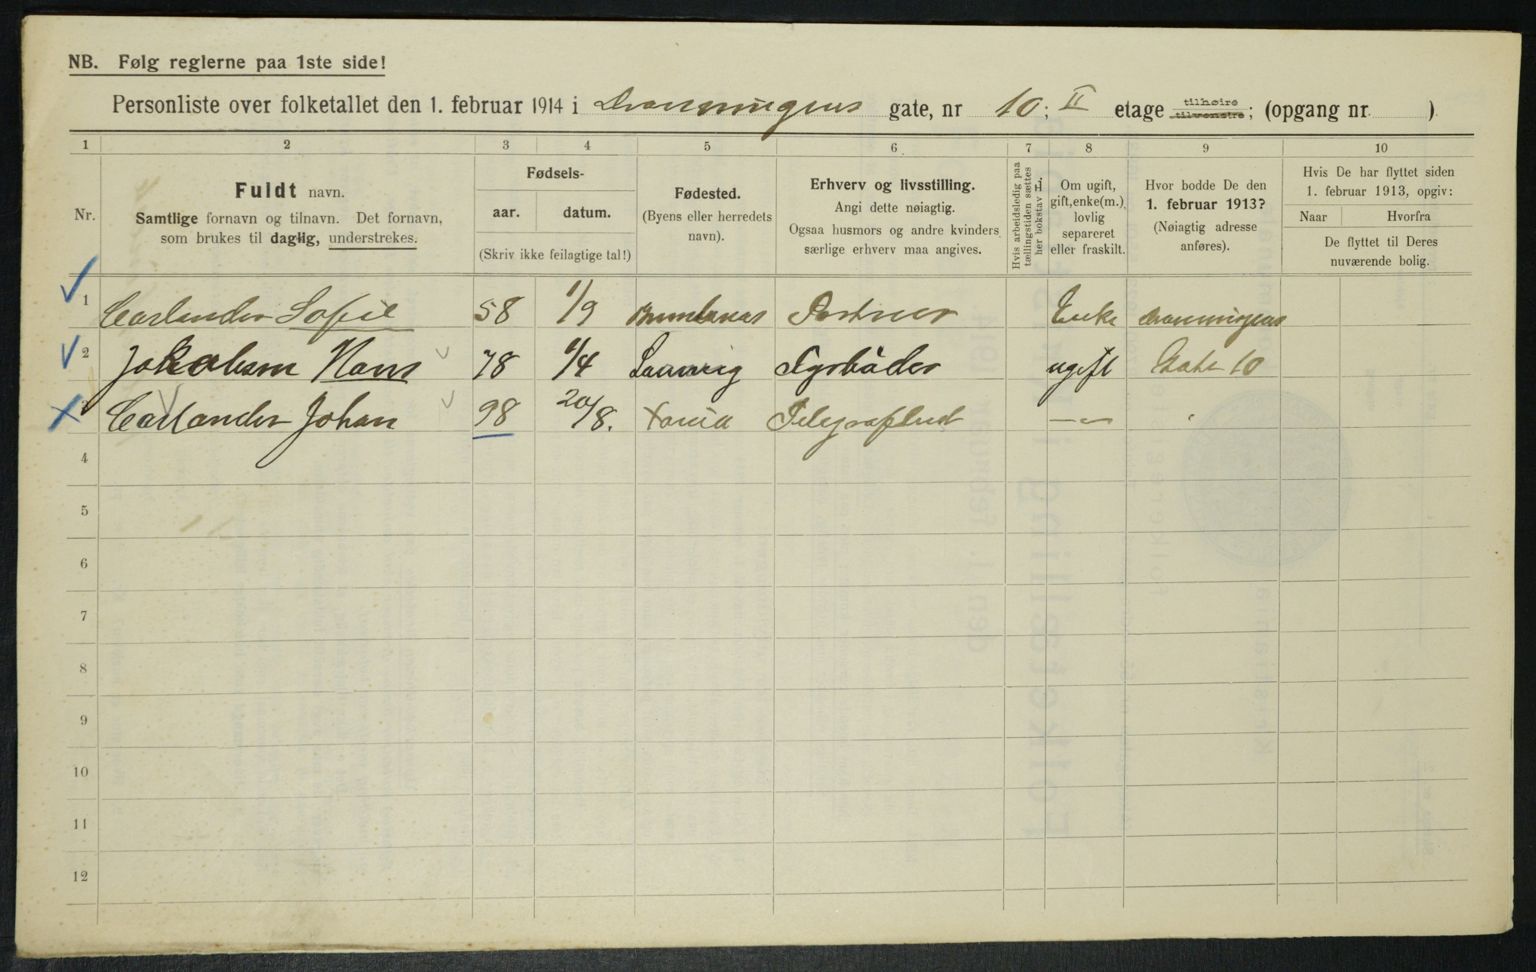 NB. Følg reglerne paa 1ste side!
Personliste over folketallet den 1. februar 1914 i Dronningens gate, nr 10; II etage tilhøire tilvenstre; (opgang nr )
1 2 3 4 5 6 7 8 9 10
Nr.
Fuldt navn.
Samtlige fornavn og tilnavn. Det fornavn,
som brukes til daglig, understrekes.
Fødsels-
aar. datum.
(Skriv ikke feilagtige tal!)
Fødested.
(Byens eller herredets
navn).
Erhverv og livsstilling.
Angi dette nøiagtig.
Ogsaa husmors og andre kvinders
særlige erhverv maa angives.
Hvis arbeidsledig paa
tællingstiden sættes
her bokstav L.
Om ugift,
gift, enke(m.),
lovlig
separeret
eller fraskilt.
Hvor bodde De den
1. februar 1913?
(Nøiagtig adresse
anføres).
Hvis De har flyttet siden
1. februar 1913, opgiv:
Naar Hvorfra
De flyttet til Deres
nuværende bolig.
1 Carlander Sofie 58 1/9 Brunlanas Portner Enke Dronningens
2 Jakobsen Hans 78 11/4 Laurvig Fyrbøder ugift Gate 10
3 Carlander Johan 98 20/8. Xania Telegrafbud
4
5
6
7
8
9
10
11
12